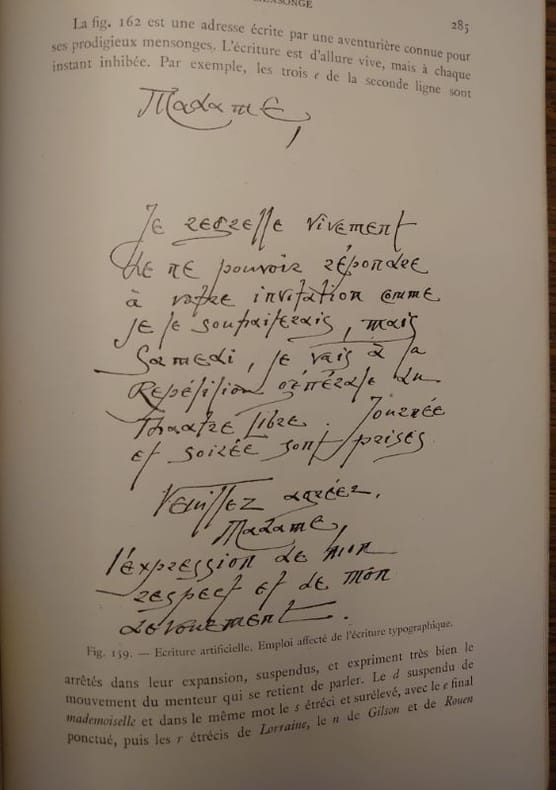 MENSONGE
285
La fig. 162 est une adresse écrite par une aventurière connue pour
ses prodigieux mensonges. L'écriture est d'allure vive, mais à chaque
instant inhibée. Par exemple, les trois e de la seconde ligne sont
Madame,
Je regrette vivement
de ne pouvoir répondre
à votre invitation comme
je le souhaiterais, mais
Samedi, je vais à la
Répétition générale du
Théâtre Libre. Journée
et soirée sont prises
Veuillez agréer,
Madame,
l'expression de mon
respect et de mon
dévouement.
Fig. 159. — Ecriture artificielle. Emploi affecté de l'écriture typographique.
arrêtés dans leur expansion, suspendus, et expriment très bien le
mouvement du menteur qui se retient de parler. Le d suspendu de
mademoiselle et dans le même mot le s étréci et surélevé, avec le e final
ponctué, puis les r étrécis de Lorraine, le n de Gilson et de Rouen